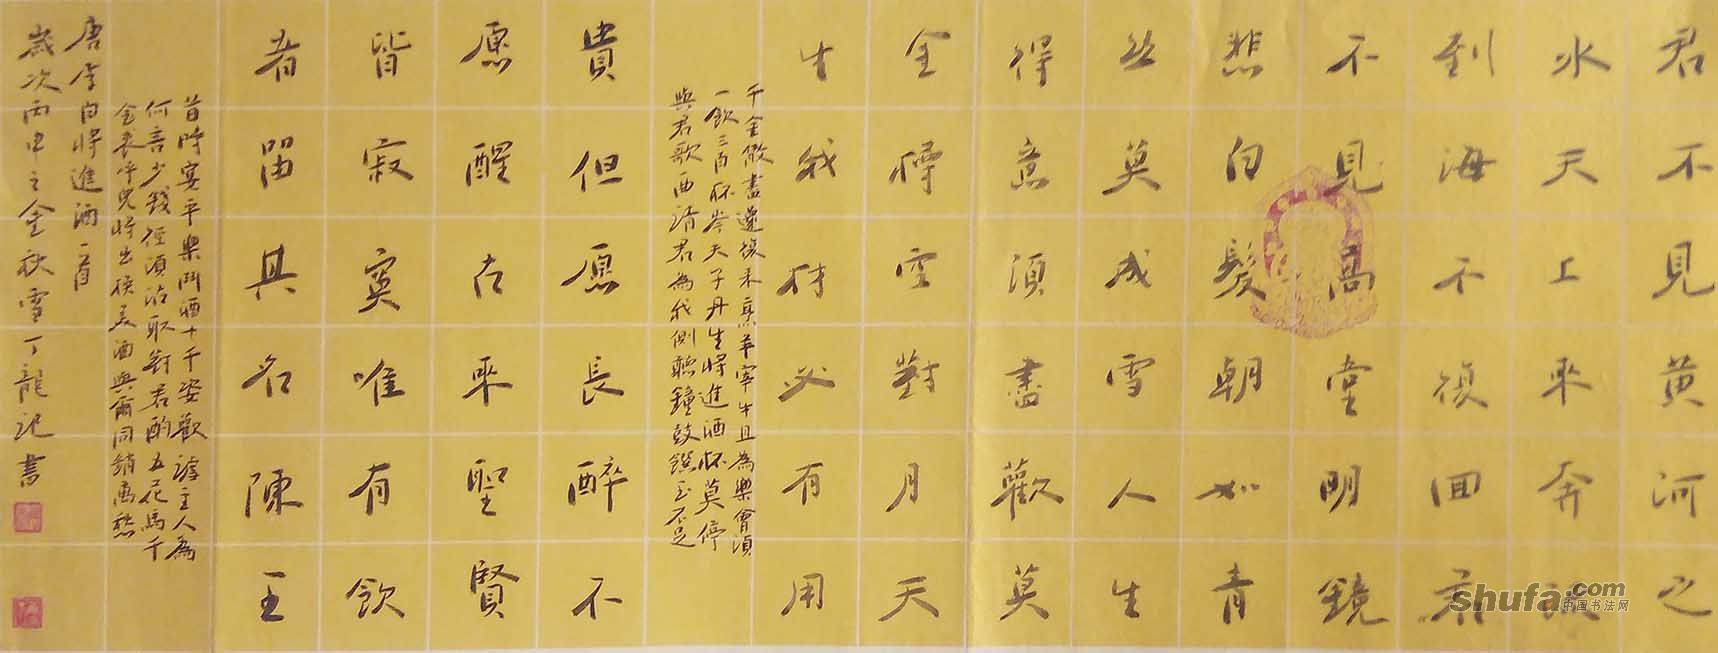 君不見黄河之
水天上来奔流
到海不復回君
不見高堂明鏡
悲白髮朝如青
丝莫成雪人生
得意須盡歡莫
金樽空對月天
生我材必有用
千金散盡還復来烹羊宰牛且為樂會須
一飲三百杯岑夫子丹生將進酒杯莫停
與君歌一曲请君為我側聽鐘鼓饌玉不足
貴但愿長醉不
愿醒古来聖賢
皆寂寞唯有飲
者留其名陳王
昔時宴平樂鬥酒十千姿歡謔主人為
何言少錢徑須沽取對君酌五花馬千
金裘呼兒將出換美酒與爾同銷萬愁
唐李白將進酒一首
歲次丙申之金秋雪丁龍記書
shufa.com
中国书法网